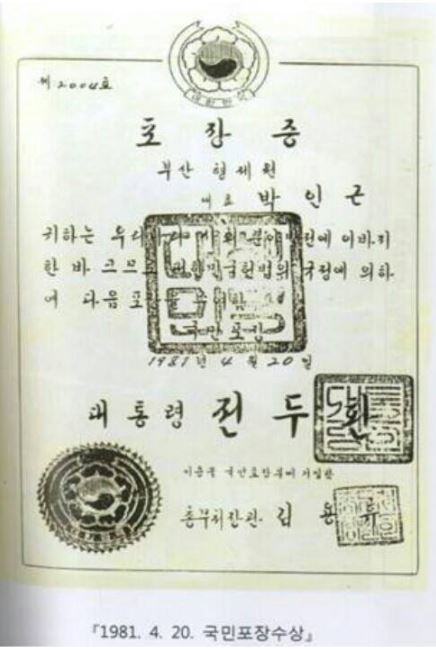 제2004호
포장증
부산 형제원
대표 박인근
귀하는 우리나라 사회 분야 발전에 이바지
한 바 크므로 대한민국헌법의 규정에 의하
여 다음 포장을
국민포장
1981년 4월 20일
대통령 전두환
이 증을 국민포장부에 기입함
총무처장관 김용휴
『1981. 4. 20. 국민포장수상』